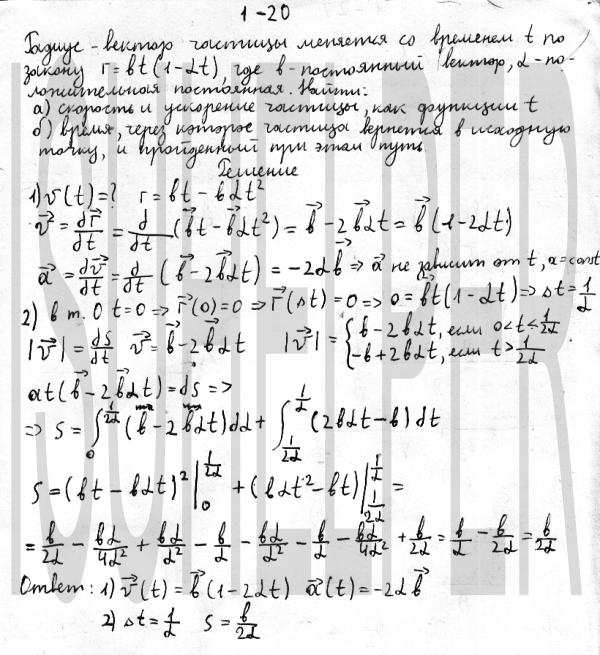 1-20
Радиус-вектор частицы меняется со временем t по
закону r = bt(1-αt), где b-постоянный вектор, α-по-
ложительная постоянная. Найти:
а) скорость и ускорение частицы, как функции t
б) время, через которое частица вернется в исходную
точку, и пройденный при этом путь.
Решение
1) v(t)=? r = bt - bαt²
v⃗ = dr⃗/dt = d/dt (b⃗t - b⃗αt²) = b⃗ - 2b⃗αt = b⃗(1-2αt)
a⃗ = dv⃗/dt = d/dt (b⃗ - 2b⃗αt) = -2αb⃗ => a⃗ не зависит от t, a=const
2) в т. О t=0 => r⃗(0)=0 => r⃗(Δt)=0 => 0 = b⃗t(1-αt) => Δt = 1/α
|v⃗| = ds/dt v⃗ = b⃗ - 2b⃗αt |v⃗| = { b-2bαt, если 0<t≤1/2α
-b+2bαt, если t>1/2α
dt(b⃗-2b⃗αt) = ds =>
=> S = ∫₀^{1/2α} (b - 2bαt)dα + ∫_{1/2α}^{1/α} (2bαt-b)dt
S = (bt - bαt)² |₀^{1/2α} + (bαt² - bt) |_{1/2α}^{1/α} =
= b/2α - bα/4α² + bα/α² - b/α - bα/α² - b/α - bα/4α² + b/2α = b/α - b/2α = b/2α
Ответ: 1) v⃗(t) = b⃗(1-2αt) a⃗(t) = -2αb⃗
2) Δt = 1/α S = b/2α